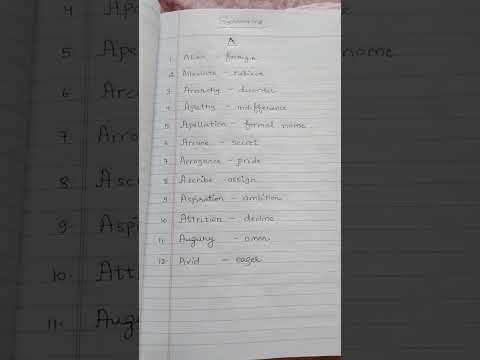 Synonyms
A
1. Alien - foreign
2. Alleviate - relieve
3. Anarchy - disorder
4. Apathy - indifference
5. Apellation - formal name
6. Arcane - secret
7. Arrogance - pride
8. Ascribe - assign
9. Aspiration - ambition
10. Attrition - decline
11. Augury - omen
12. Avid - eager